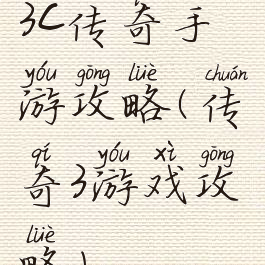 3C传奇手
yóu gōng lüè chuán
游攻略(传
qí yóu xì gōng
奇3游戏攻
lüè
略)